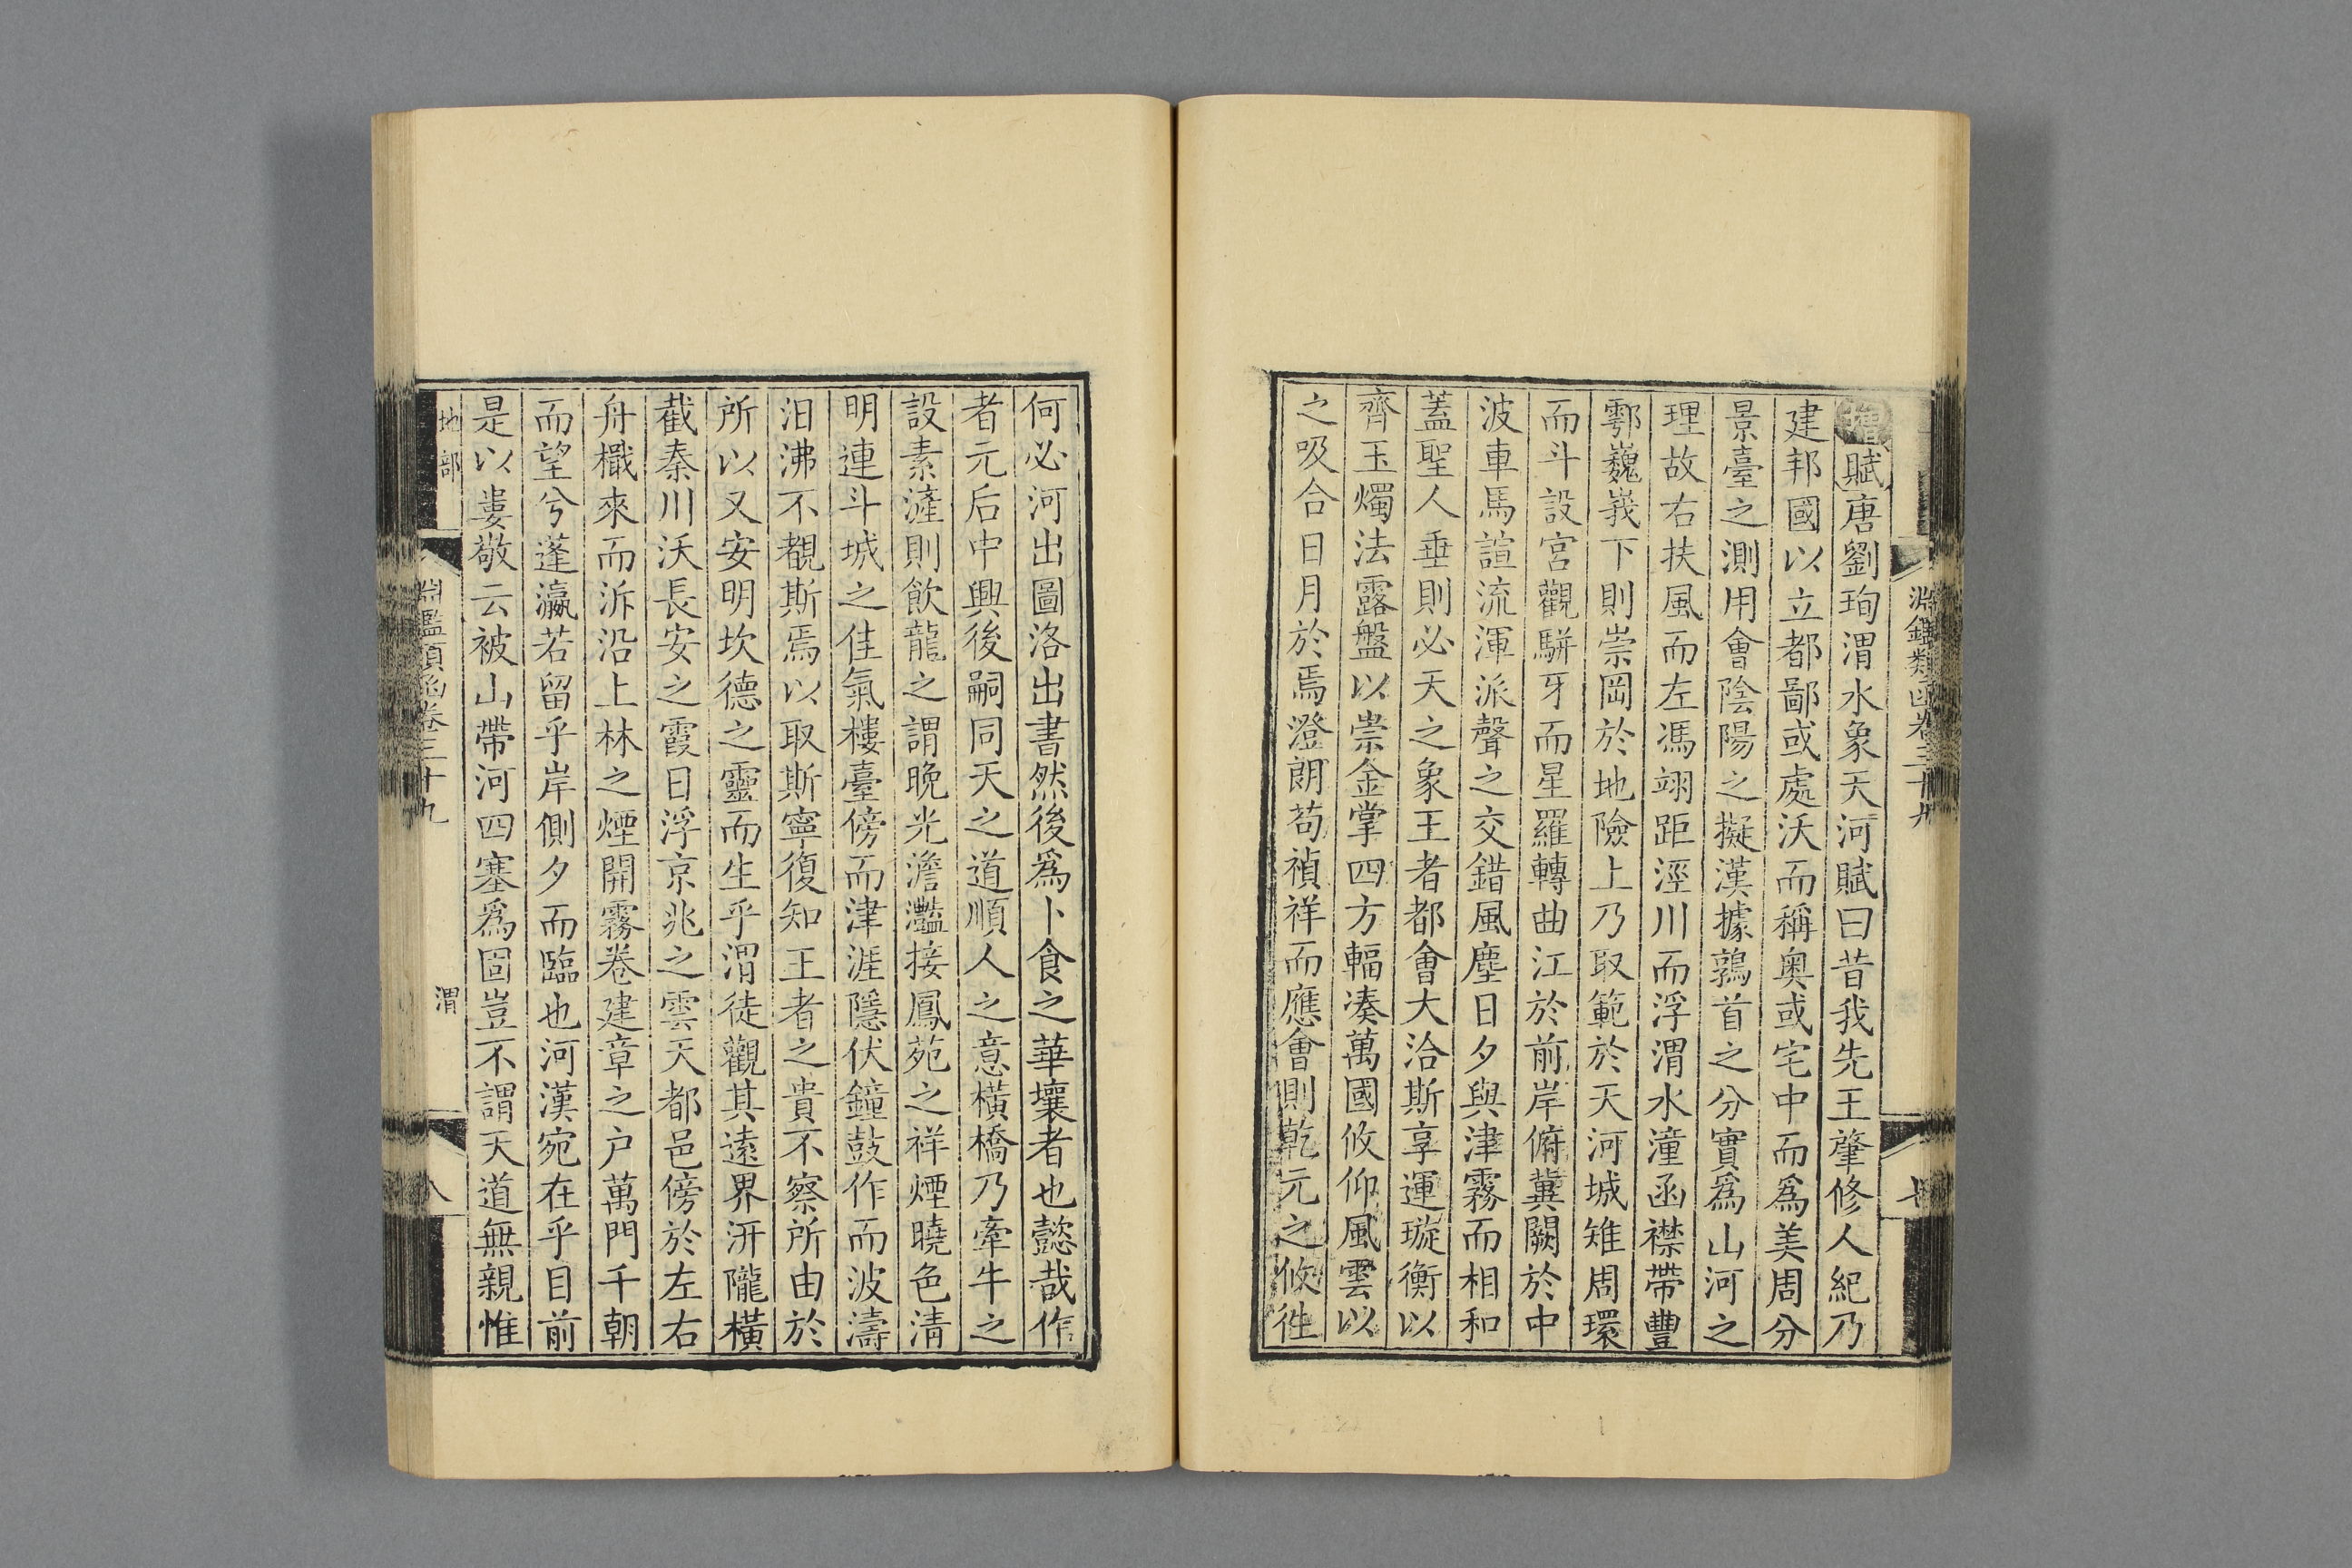 淵鑑類函卷三十九
七
增賦唐劉珣渭水象天河賦曰昔我先王肇修人紀乃
建邦國以立都鄙或處沃而稱奧或宅中而為美周分
景臺之測用會陰陽之擬漢據鶉首之分實為山河之
理故右扶風而左馮翊距涇川而浮渭水潼函襟帶豐
鄠巍峩下則崇岡於地險上乃取範於天河城雉周環
而斗設宮觀駢牙而星羅轉曲江於前岸俯冀闕於中
波車馬諠流渾派聲之交錯風塵日夕與津霧而相和
蓋聖人垂則必天之象王者都會大洽斯享運璇衡以
齊玉燭法露盤以崇金掌四方輻湊萬國攸仰風雲以
之吸合日月於焉澄朗苟禎祥而應會則乾元之攸徃
何必河出圖洛出書然後為卜食之華壤者也懿哉作
者元后中興後嗣同天之道順人之意橫橋乃牽牛之
設素滻則飲龍之謂晚光澹灩接鳳苑之祥煙曉色清
明連斗城之佳氣樓臺傍而津涯隱伏鐘鼓作而波濤
汨沸不覩斯焉以取斯寧復知王者之貴不察所由於
所以又安明坎德之靈而生乎渭徒觀其遠界汧隴橫
截秦川沃長安之霞日浮京兆之雲天都邑傍於左右
舟檝來而泝沿上林之煙開霧卷建章之户萬門千朝
而望兮蓬瀛若留乎岸側夕而臨也河漢宛在乎目前
是以婁敬云被山帶河四塞為固豈不謂天道無親惟
地部
淵鑑類函卷三十九
渭
八